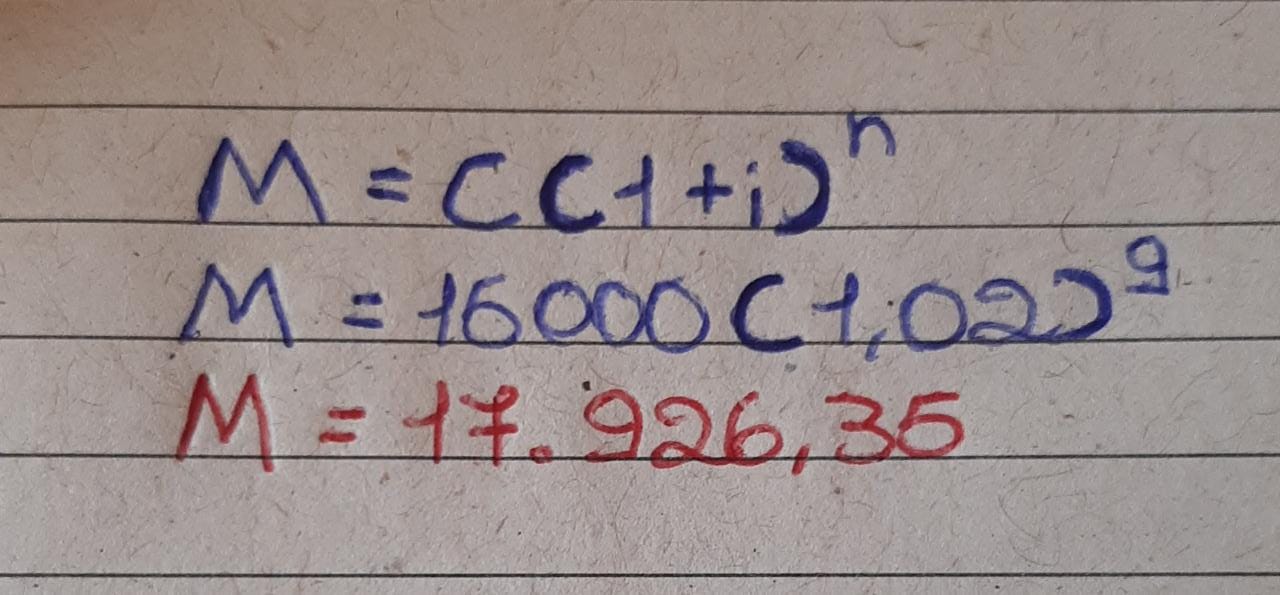 M = C(1+i)ⁿ
M = 15000(1,02)⁹
M = 17.926,35